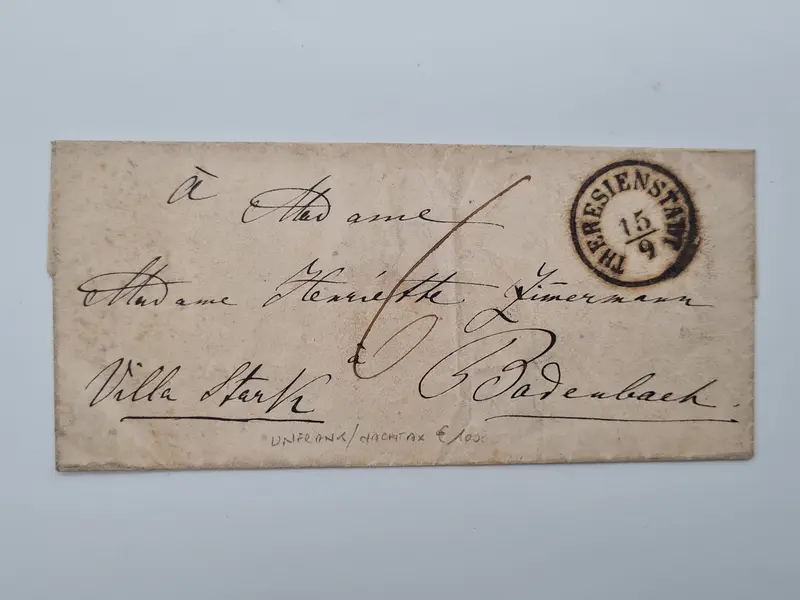 à
Madame
6
THERESIENSTADT
15/9
Madame Henriette Zim̄ermann
à
Villa Stark Bodenbach.
UNFRANK/NACHTAX € 100.